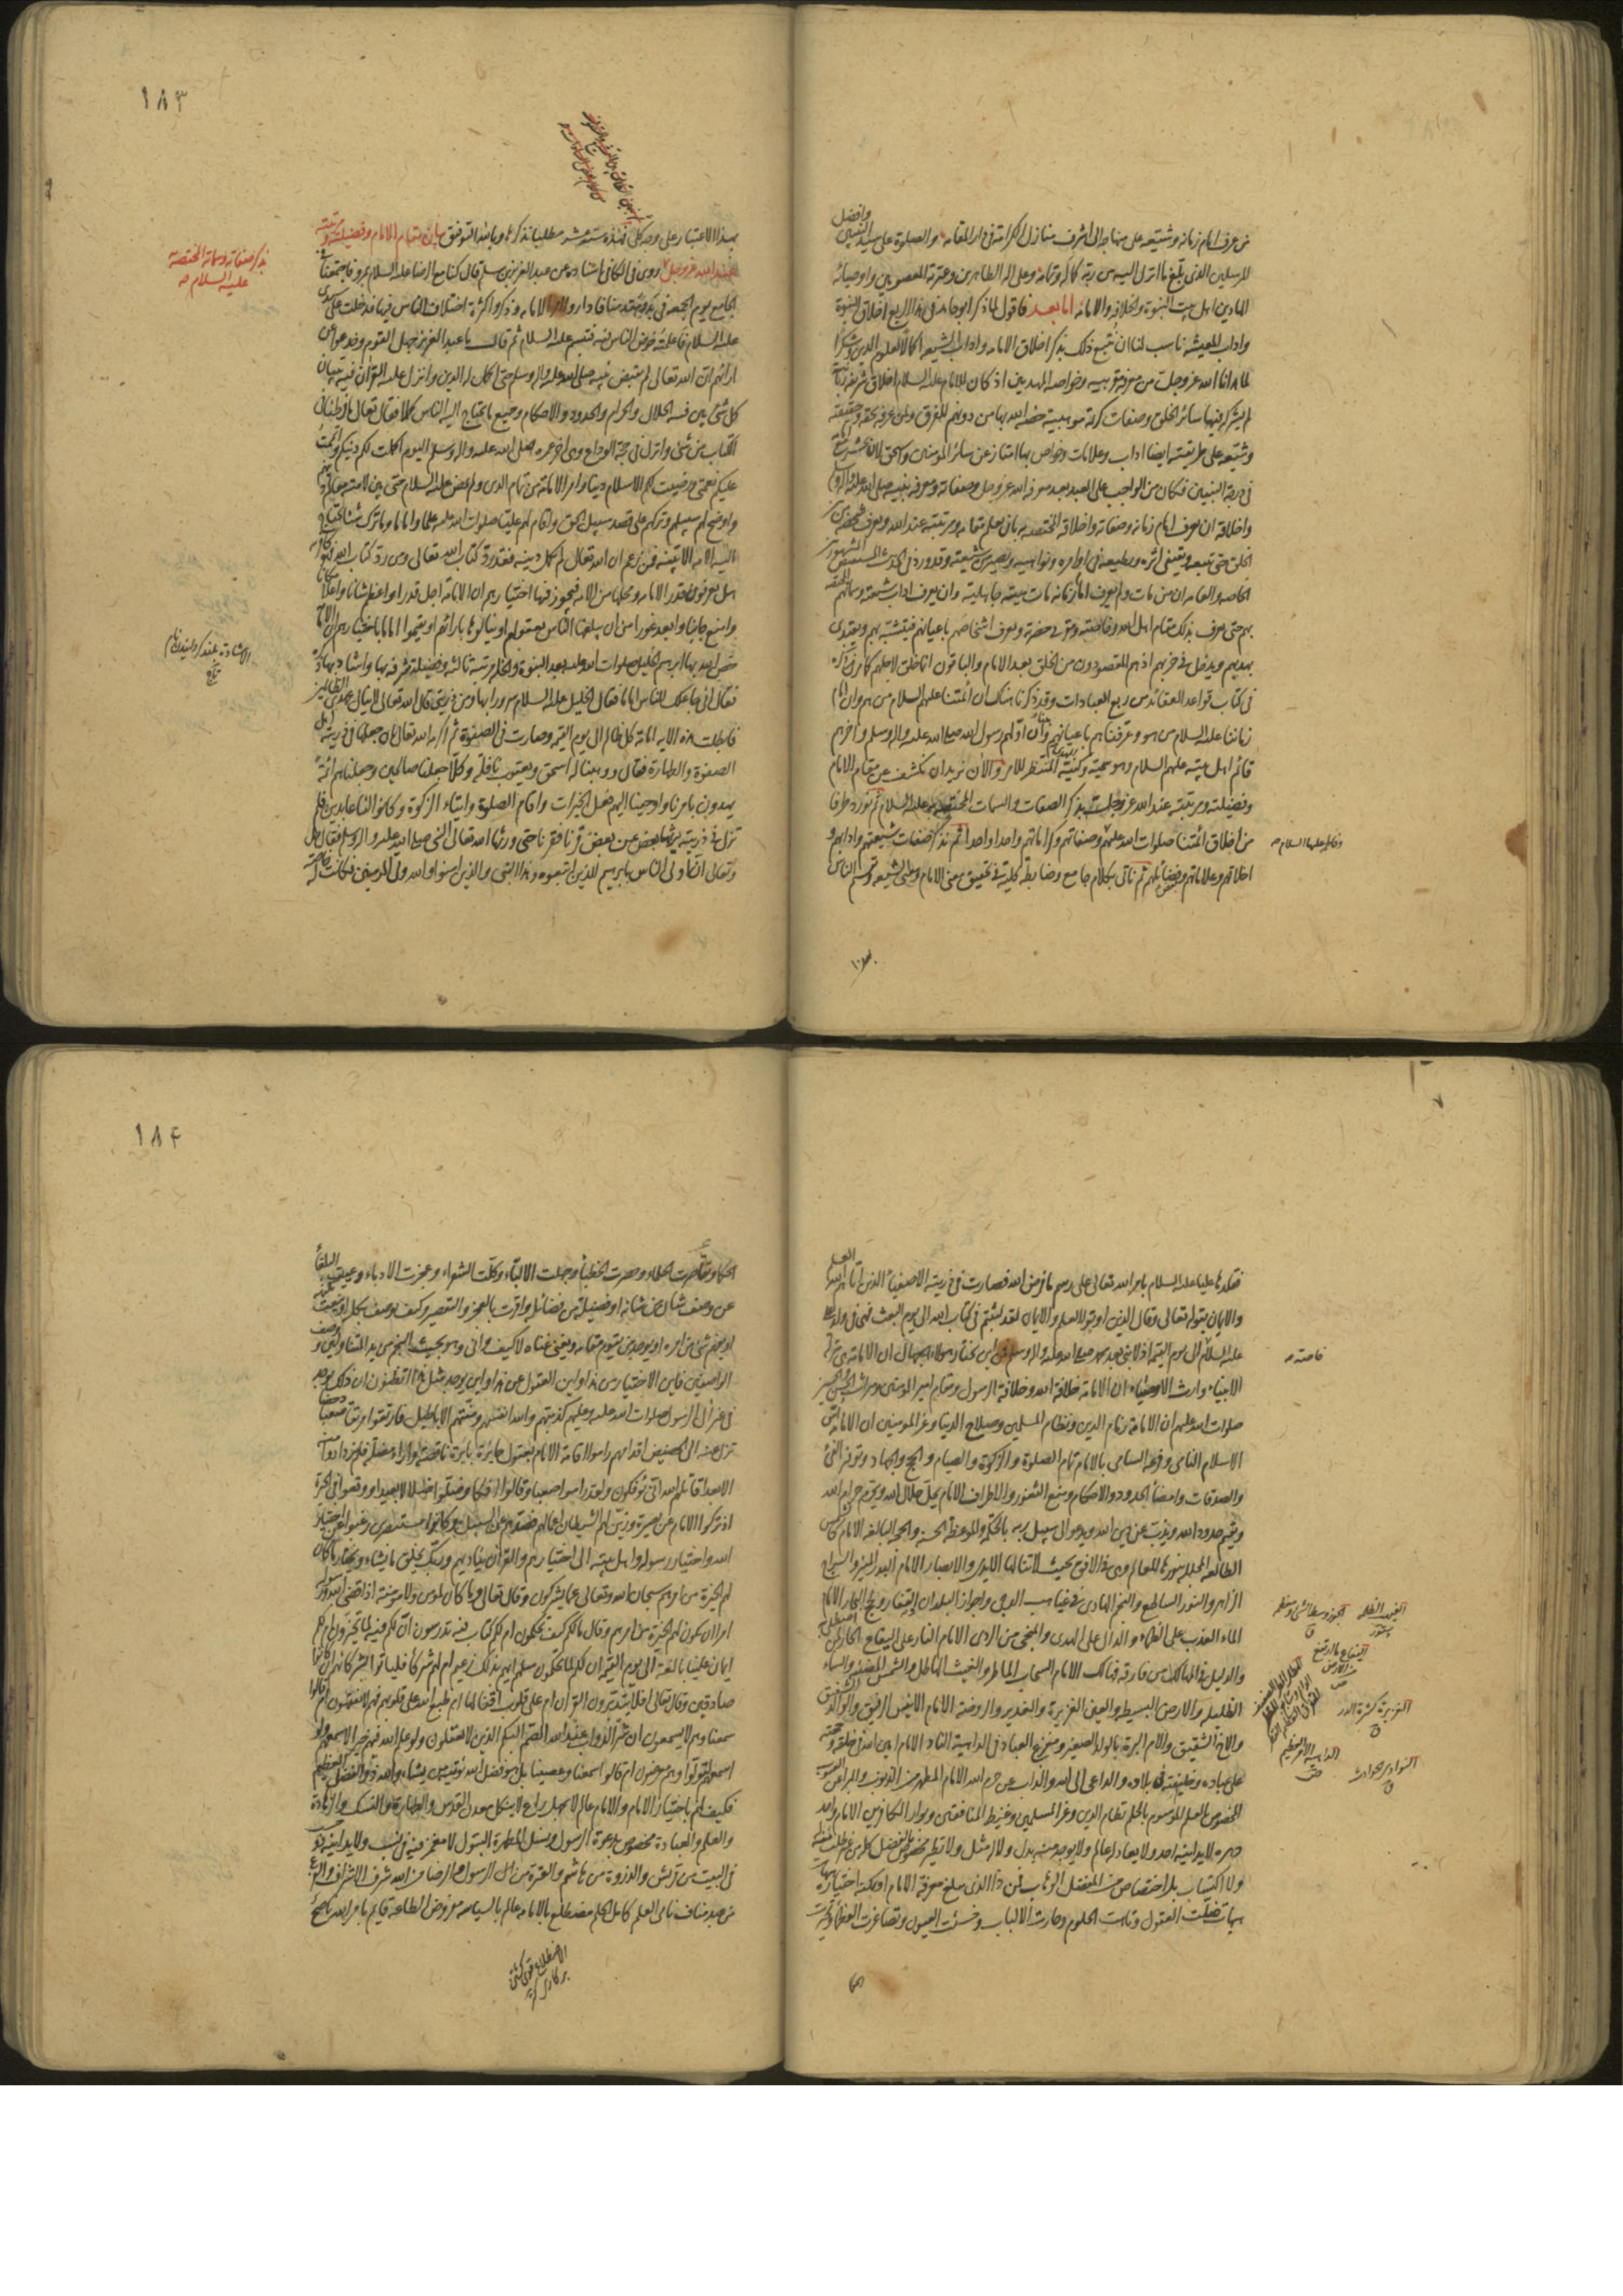 من عرف امام زمانه وشيعته على منهاجه الى اشرف منازل الكرامة في دار المقامة والصلوة على سيد النبيين وافضل
المرسلين الذي بلغ ما انزل اليه من ربه وعلى اله الطاهرين وعترته المعصومين واوصيائه
الهادين اهل بيت النبوة والخلافة والامامة اما بعد فاقول لما ذكر ابو حامد في هذا الربع اخلاق النبوة
واداب المعيشة ناسب لنا ان نتبع ذلك بذكر اخلاق الامامة واداب الشيعة اكمالا لعلوم الدين وشكرا
لما هدانا الله عز وجل من معرفة
لم يشركه فيها سائر الخلق وصفات كريمة موهبية خصه الله بها من دونهم
وشيعته على طريقته ايضا اداب وعلامات وخواص بها امتاز عن سائر المؤمنين
في درجة النبيين فكان من الواجب على العبد بعد معرفة الله عز وجل وصفاته ومعرفة نبيه صلى الله عليه واله
واخلاقه ان يعرف امام زمانه وصفاته واخلاقه المختصة به بان يعلم مقامه ومرتبته عند الله ويعرف شخصه
الخلق حتى يتبعه ويقتفي اثره ويطيعه في اوامره ونواهيه ويصير من شيعته وقد ورد في الحديث المشهور
ان من مات ولم يعرف امام زمانه مات ميتة جاهلية وان يعرف اداب شيعته
بهم حتى يعرف بذلك مقام اهل الله ويعرف اشخاصهم باعيانهم فيتشبه بهم ويقتدي
بهديهم ويدخل في حزبهم اذ هم المقصودون من الخلق بعد الامام والباقون انما خلق لاجلهم
في كتاب قواعد العقائد من ربع العبادات وقد ذكرنا هناك ان ائمتنا عليهم السلام من هم وان امام
زماننا عليه السلام من هو وعرفناهم باعيانهم وان اولهم رسول الله صلى الله عليه واله وسلم واخرهم
قائم اهل بيته عليهم السلام وهو سميه وكنيه المنتظر للامر والان نريد ان نكشف عن مقام الامام
وفضيلته ومرتبته عند الله عز وجل بذكر الصفات والسمات المختصة به عليه السلام ثم نورد طرفا
من اخلاق ائمتنا صلوات الله عليهم وصفاتهم وكراماتهم واحدا واحدا ثم نذكر صفات شيعتهم وادابهم و
اخلاقهم وعلاماتهم وفضائلهم ثم نأتي بكلام جامع وضابطة كلية في تحقيق معنى الامام ومعنى الشيعة وقسم الناس
وفاطمة عليها السلام صح
١٨٣
بهذا الاعتبار على وجه كلي فهذه ستة عشر مطلبا نذكرها وبالله التوفيق بيان مقام الامام وفضيلته ومرتبته
عند الله عز وجل روى في الكافي باسناده عن عبد العزيز بن مسلم قال كنا مع الرضا عليه السلام بمرو فاجتمعنا في
الجامع يوم الجمعة في بدو مقدمنا فاداروا امر الامامة وذكروا كثرة اختلاف الناس فيها فدخلت على سيدي
عليه السلام فاعلمته خوض الناس فيه فتبسم عليه السلام ثم قال يا عبد العزيز جهل القوم وخدعوا عن
ارائهم ان الله تعالى لم يقبض نبيه صلى الله عليه واله وسلم حتى اكمل له الدين وانزل عليه القران فيه تبيان
كل شيء بين فيه الحلال والحرام والحدود والاحكام وجميع ما يحتاج اليه الناس كملا فقال تعالى ما فرطنا في
الكتاب من شيء وانزل في حجة الوداع وهي اخر عمره صلى الله عليه واله وسلم اليوم اكملت لكم دينكم واتممت
عليكم نعمتي ورضيت لكم الاسلام دينا وامر الامامة من تمام الدين ولم يمض عليه السلام حتى بين لامته معالم دينهم
واوضح لهم سبيلهم وتركهم على قصد سبيل الحق واقام لهم عليا صلوات الله عليه علما واماما وما ترك شيئا يحتاج
اليه الامة الا بينه فمن زعم ان الله تعالى لم يكمل دينه فقد رد كتاب الله تعالى ومن رد كتاب الله فهو كافر
هل يعرفون قدر الامامة ومحلها من الامة فيجوز فيها اختيارهم ان الامامة اجل قدرا واعظم شانا واعلا مكانا
وامنع جانبا وابعد غورا من ان يبلغها الناس بعقولهم او ينالوها بارائهم او يقيموا اماما باختيارهم ان الامامة
خص الله بها ابرهيم الخليل صلوات الله عليه بعد النبوة والخلة مرتبة ثالثة وفضيلة شرفه بها واشاد بها ذكره
فقال اني جاعلك للناس اماما فقال الخليل عليه السلام سرورا بها ومن ذريتي قال الله تعالى لا ينال عهدي الظالمين
فابطلت هذه الاية امامة كل ظالم الى يوم القيمة وصارت في الصفوة ثم اكرمه الله تعالى بان جعلها في ذريته اهل
الصفوة والطهارة فقال ووهبنا له اسحق ويعقوب نافلة وكلا جعلنا صالحين وجعلناهم ائمة
يهدون بامرنا واوحينا اليهم فعل الخيرات واقام الصلوة وايتاء الزكوة وكانوا لنا عابدين فلم
تزل في ذريته يرثها بعض عن بعض قرنا فقرنا حتى ورثها الله تعالى النبي صلى الله عليه واله وسلم فقال جل
وتعالى ان اولى الناس بابرهيم للذين اتبعوه وهذا النبي والذين امنوا والله ولي المؤمنين فكانت له خاصة
بذكر صفاته وسماته المختصة
عليه السلام صح
الاشادة بلند كردانيدن نام
تاج
فقلدها عليا عليه السلام بامر الله تعالى على رسم ما فرض الله فصارت في ذريته الاصفياء الذين اتاهم الله العلم
والايمان بقوله تعالى وقال الذين اوتوا العلم والايمان لقد لبثتم في كتاب الله الى يوم البعث فهي في ولد علي
عليه السلام الى يوم القيمة اذ لا نبي بعد محمد صلى الله عليه واله وسلم فمن اين يختار هؤلاء الجهال ان الامامة هي منزلة
الانبياء وارث الاوصياء ان الامامة خلافة الله وخلافة الرسول ومقام امير المؤمنين وميراث الحسن والحسين
صلوات الله عليهم ان الامامة زمام الدين ونظام المسلمين وصلاح الدنيا وعز المؤمنين ان الامامة اس
الاسلام النامي وفرعه السامي بالامام تمام الصلوة والزكوة والصيام والحج والجهاد وتوفير الفيء
والصدقات وامضاء الحدود والاحكام ومنع الثغور والاطراف الامام يحل حلال الله ويحرم حرام الله
ويقيم حدود الله ويذب عن دين الله ويدعو الى سبيل ربه بالحكمة والموعظة الحسنة والحجة البالغة الامام كالشمس
الطالعة المجللة بنورها للعالم وهي في الافق بحيث لا تنالها الايدي والابصار الامام البدر المنير والسراج
الزاهر والنور الساطع والنجم الهادي في غياهب الدجى واجواز البلدان والقفار ولجج البحار الامام
الماء العذب على الظماء والدال على الهدى والمنجي من الردى الامام النار على اليفاع الحار لمن اصطلى به
والدليل في المهالك من فارقه فهالك الامام السحاب الماطر والغيث الهاطل والشمس المضيئة والسماء
الظليلة والارض البسيطة والعين الغزيرة والغدير والروضة الامام الانيس الرفيق والوالد الشفيق
والاخ الشقيق والام البرة بالولد الصغير ومفزع العباد في الداهية الناد الامام امين الله في خلقه وحجته
على عباده وخليفته في بلاده والداعي الى الله والذاب عن حرم الله الامام المطهر من الذنوب والمبرأ عن العيوب
المخصوص بالعلم الموسوم بالحلم نظام الدين وعز المسلمين وغيظ المنافقين وبوار الكافرين الامام واحد
دهره لا يدانيه احد ولا يعادله عالم ولا يوجد منه بدل ولا له مثل ولا نظير مخصوص بالفضل كله من غير طلب منه
ولا اكتساب بل اختصاص من المفضل الوهاب فمن ذا الذي يبلغ معرفة الامام او يمكنه اختياره هيهات
هيهات ضلت العقول وتاهت الحلوم وحارت الالباب وخسئت العيون وتصاغرت العظماء وتحيرت
خاصته صح
الغيهب الظلمة
اليفاع ما ارتفع
من الارض
الغزيرة كثيرة الدر
الداهية الامر العظيم
١٨٤
الحكماء وتقاصرت الحلماء وحصرت الخطباء وجهلت الالباء وكلت الشعراء وعجزت الادباء وعييت البلغاء
عن وصف شان من شانه او فضيلة من فضائله واقرت بالعجز والتقصير وكيف يوصف بكله او ينعت بكنهه
او يفهم شيء من امره او يوجد من يقوم مقامه ويغني غناه لا كيف وانى وهو بحيث النجم من يد المتناولين ووصف
الواصفين فاين الاختيار من هذا واين العقول عن هذا واين يوجد مثل هذا اتظنون ان ذلك يوجد
في غير ال الرسول صلوات الله عليه وعليهم كذبتهم والله انفسهم ومنتهم الاباطيل فارتقوا مرتقا صعبا دحضا
تزل عنه الى الحضيض اقدامهم راموا اقامة الامام بعقول حايرة بايرة ناقصة واراء مضلة فلم يزدادوا منه
الا بعدا قاتلهم الله انى يؤفكون ولقد راموا صعبا وقالوا افكا وضلوا ضلالا بعيدا ووقعوا في الحيرة
اذ تركوا الامام عن بصيرة وزين لهم الشيطان اعمالهم فصدهم عن السبيل وكانوا مستبصرين رغبوا عن اختيار
الله واختيار رسوله واهل بيته الى اختيارهم والقران يناديهم وربك يخلق ما يشاء ويختار ما كان
لهم الخيرة من امرهم سبحان الله وتعالى عما يشركون وقال تعالى وما كان لمؤمن ولا مؤمنة اذا قضى الله ورسوله
امرا ان يكون لهم الخيرة من امرهم وقال ما لكم كيف تحكمون ام لكم كتاب فيه تدرسون ان لكم فيه لما تخيرون ام لكم
ايمان علينا بالغة الى يوم القيمة ان لكم لما تحكمون سلهم ايهم بذلك زعيم ام لهم شركاء فلياتوا بشركائهم ان كانوا
صادقين وقال تعالى افلا يتدبرون القران ام على قلوب اقفالها ام طبع الله على قلوبهم فهم لا يفقهون ام قالوا
سمعنا وهم لا يسمعون ان شر الدواب عند الله الصم البكم الذين لا يعقلون ولو علم الله فيهم خيرا لاسمعهم ولو
اسمعهم لتولوا وهم معرضون ام قالوا سمعنا وعصينا بل هو فضل الله يؤتيه من يشاء والله ذو الفضل العظيم
فكيف لهم باختيار الامام والامام عالم لا يجهل وراع لا ينكل معدن القدس والطهارة والنسك والزهادة
والعلم والعبادة مخصوص بدعوة الرسول ونسل المطهرة البتول لا مغمز فيه في نسب ولا يدانيه ذو حسب
في البيت من قريش والذروة من هاشم والعترة من ال الرسول والرضا من الله شرف الاشراف والفرع
من عبد مناف نامي العلم كامل الحلم مضطلع بالامامة عالم بالسياسة مفروض الطاعة قايم بامر الله ناصح